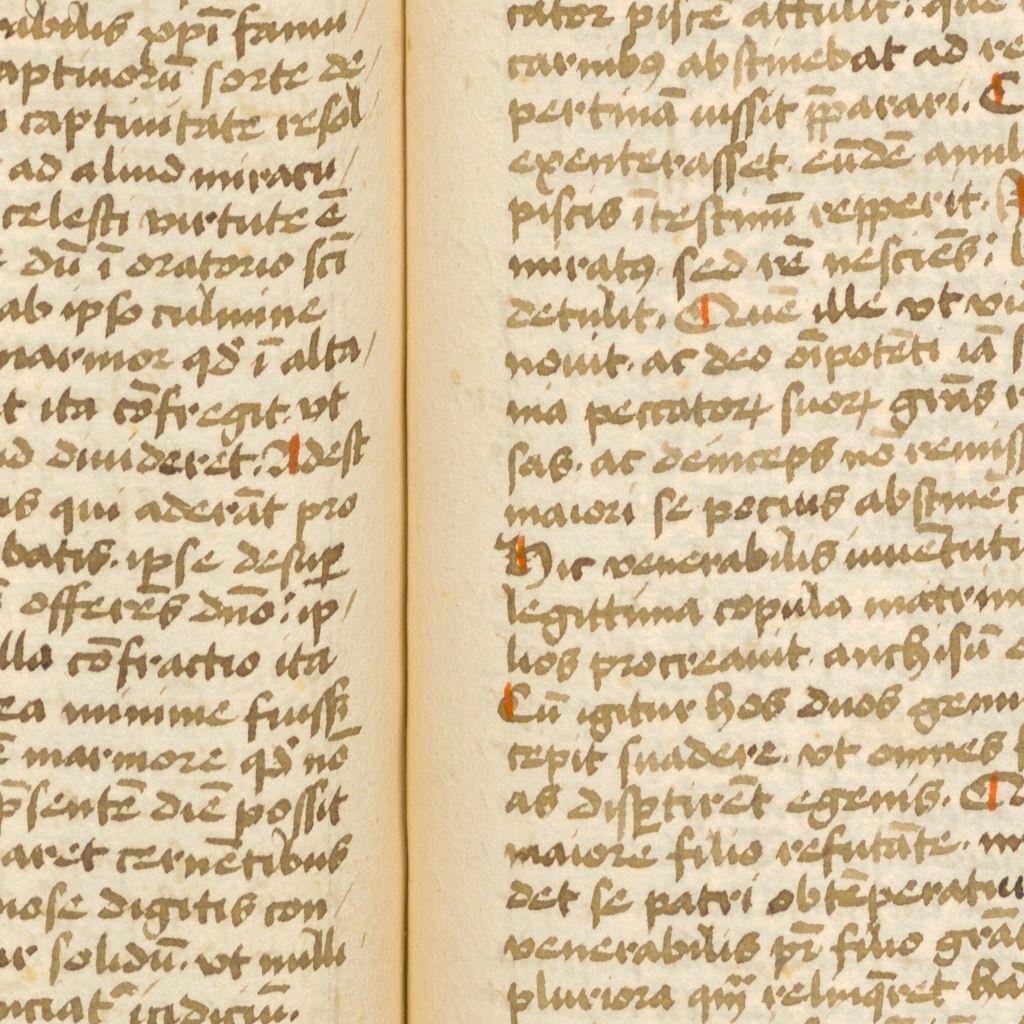 ribilis xp̄i famu/
aptiuorū sorte de/
captiuitate resol
ad aliud miracu/
celesti virtute ē
dū ī oratorio sc̄i
ab ipso culmine
marmor qd̄ ī alta/
t ita cōfregit. vt
diuideret. Adest
qui aderāt pro
batis. ipse desup̱
offerēs dn̄o: ip/
lla cōfractio ita
ea minime fuiss;
marmore qd̄ nō
p̄sentē diē possit
aret cernētibus
ose digitis con/
r solidū. vt nulli/
nciat̄ icidiciū.
cator piscē attulit: que
carnibꝯ abstinebat ad re
pertinā iussit p̄parari. C
exenterasset. eūdē anul
piscis ītestinū repperit.
miratꝯ. sed rē nesciēs:
detulit. Quē ille vt vi
nouit. ac deo oīpotēti iā
ma peccatoꝝ suoꝝ grās
sas. ac deinceps nō remiss
maiori se pocius abstinē
Hic venerabilis iuuētuti
legittima copula matrim
lios procreauit. anchisū
Cū igitur hos duos genu
cepit suadere. vt omnes
as disp̱tirēt egenis.
maiore filio refutāte.
det se patri obtēperatu
venerabilis pr̄ filio grāt
pluriora qm̄ relinq̄ret